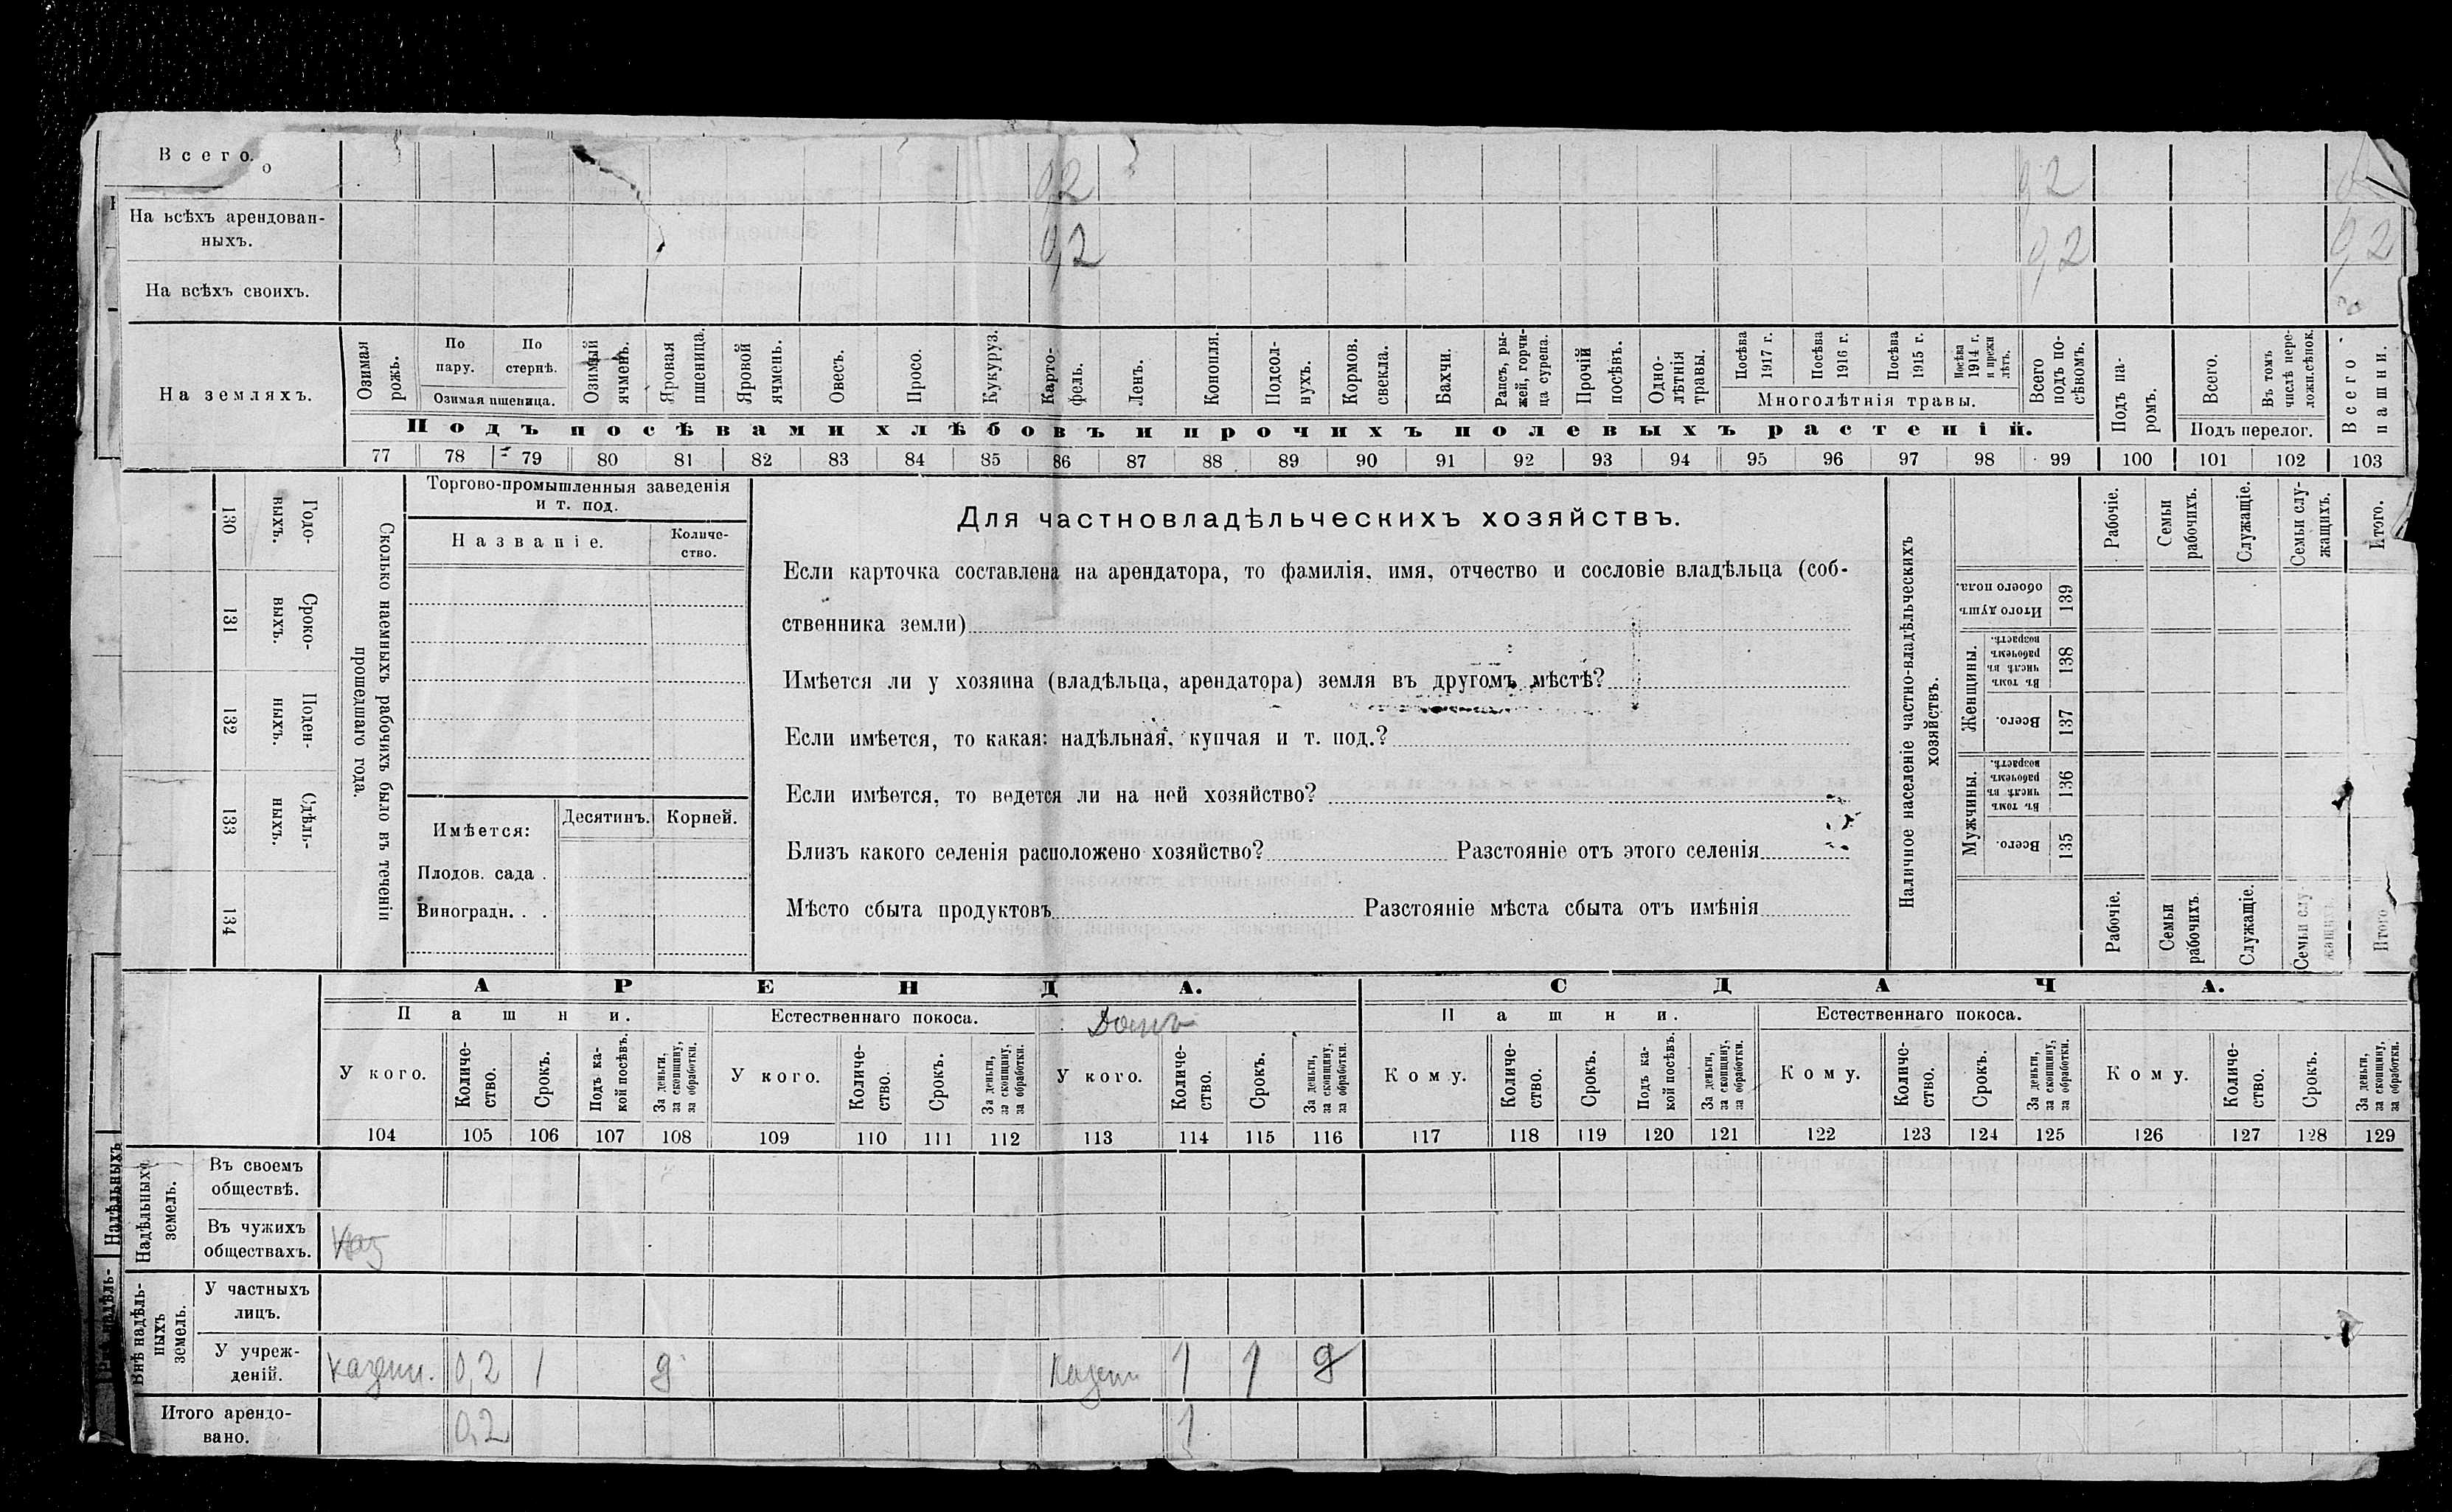 Всего.
0,2 0,2
На всѣхъ арендован-
ныхъ.
0,2 0,2 0,2
На всѣхъ своихъ.
На земляхъ.
Озимая рожь.
По пару.
По стернѣ.
Озимая пшеница.
Озимый ячмень.
Яровая пшеница.
Яровой ячмень.
Овесъ.
Просо.
Кукуруз.
Карто-
фель.
Ленъ.
Конопля.
Подсол-
нухъ.
Кормов. свекла.
Бахчи.
Рапсъ, ры-
жей, горчи-
ца сурепа.
Прочій посѣвъ.
Одно-
лѣтнія травы.
Посѣва 1917 г.
Посѣва 1916 г.
Посѣва 1915 г.
Посѣва 1914 г. и прежн лѣтъ.
Многолѣтнія травы.
Всего подъ по-
сѣвомъ.
Подъ па-
ромъ.
Всего.
Въ томъ числѣ пере-
ложн.сѣнок.
Подъ перелог.
Всего пашни.
Подъ посѣвами хлѣбовъ и прочихъ полевыхъ растеній.
77 78 79 80 81 82 83 84 85 86 87 88 89 90 91 92 93 94 95 96 97 98 99 100 101 102 103
Годо-
выхъ.
130
Сроко-
выхъ.
131
Поден-
ныхъ.
132
Сдѣль-
ныхъ.
133
134
Сколько наемныхъ рабочихъ было въ теченіи
прошедшаго года.
Торгово-промышленныя заведенія
и т. под.
Названіе.
Количе-
ство.
Имѣется:
Десятинъ.
Корней.
Плодов. сада .
Виноградн. . .
Для частновладѣльческихъ хозяйствъ.
Если карточка составлена на арендатора, то фамилія, имя, отчество и сословіе владѣльца (соб-
ственника земли)
Имѣется ли у хозяина (владѣльца, арендатора) земля въ другомъ мѣстѣ?
Если имѣется, то какая: надѣльная, купчая и т. под.?
Если имѣется, то ведется ли на ней хозяйство?
Близъ какого селенія расположено хозяйство? Разстояніе отъ этого селенія
Мѣсто сбыта продуктовъ Разстояніе мѣста сбыта отъ имѣнія
Наличное населеніе частно-владѣльческихъ
хозяйствъ.
Рабочіе.
Семьи рабочихъ.
Служащіе.
Семьи слу-
жащихъ.
Итого.
Итого душъ обоего пола.
139
Женщины.
Въ томъ числѣ въ рабочемъ возрастѣ.
138
Всего.
137
Мужчины.
Въ томъ числѣ въ рабочемъ возрастѣ.
136
Всего.
135
Рабочіе.
Семьи рабочихъ.
Служащіе.
Семьи слу-
жащихъ.
Итого
АРЕНДА.
СДАЧА.
Пашни.
Естественнаго покоса.
Пашни.
Естественнаго покоса.
У кого.
Количе-
ство.
Срокъ.
Подъ ка-
кой посѣвъ.
За деньги,
за скопщину,
за обработки.
У кого.
Количе-
ство.
Срокъ.
За деньги,
за скопщину,
за обработки.
У кого.
Количе-
ство.
Срокъ.
За деньги,
за скопщину,
за обработки.
Кому.
Количе-
ство.
Срокъ.
Подъ ка-
кой посѣвъ.
За деньги,
за скопщину,
за обработки.
Кому.
Количе-
ство.
Срокъ.
За деньги,
за скопщину,
за обработки.
Кому.
Количе-
ство.
Срокъ.
За деньги,
за скопщину,
за обработки.
104 105 106 107 108 109 110 111 112 113 114 115 116 117 118 119 120 121 122 123 124 125 126 127 128 129
Надѣльныхъ
Надѣльныхъ земель.
Въ своемъ
обществѣ.
Въ чужихъ
обществахъ.
Каз
Внѣ надѣль-
ныхъ земель.
У частныхъ
лицъ.
У учреж-
деній.
казенн. 0,2 1 д казенн 1 1 д
Итого арендо-
вано.
0,2 1